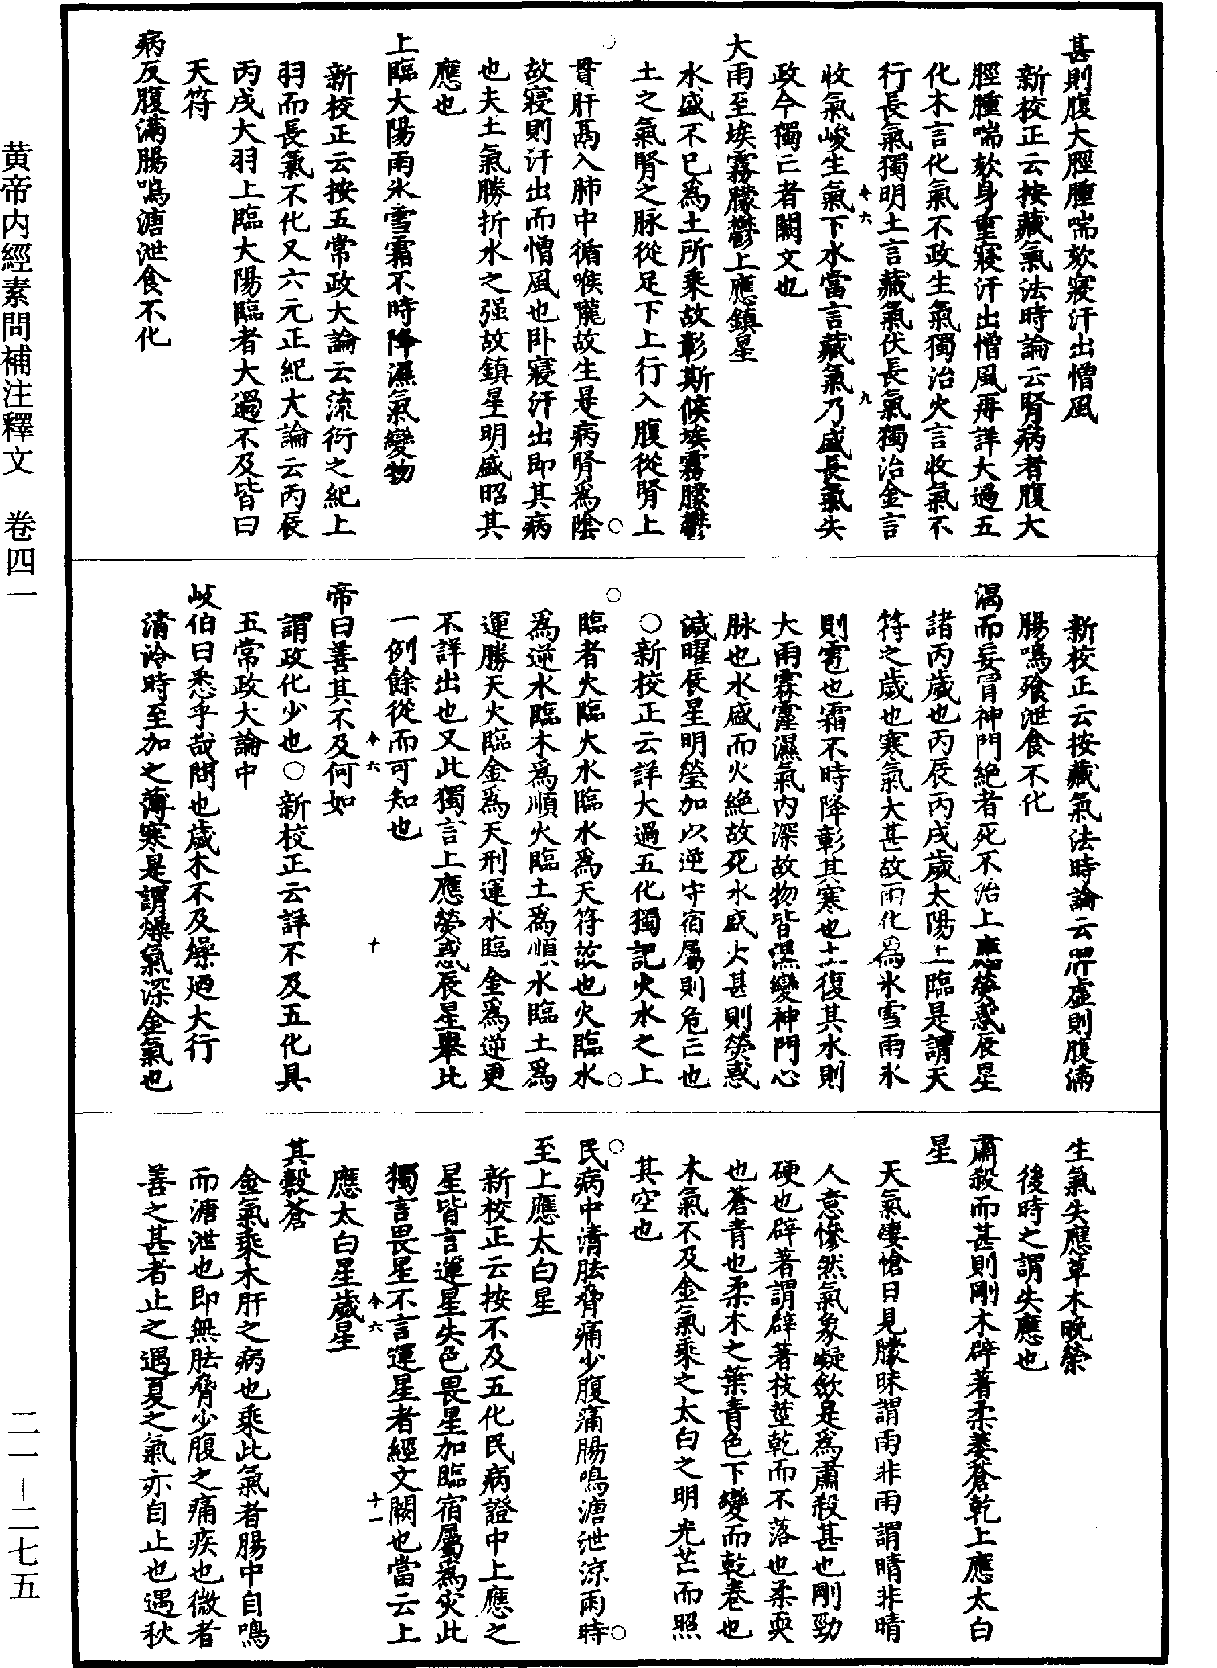 甚則腹大脛腫喘欬寢汗出憎風
新校正云按藏氣法時論云腎病者腹大
脛腫喘欬身重寢汗出憎風再詳大過五
化木言化氣不政生氣獨治火言收氣不
行長氣獨明土言藏氣伏長氣獨治金言
收氣峻生氣下水當言藏氣乃盛長氣失
政今獨亡者闕文也
大雨至埃霧朦鬱上應鎮星
水盛不已為土所乘故彰斯候埃霧朦鬱
土之氣腎之脉從足下上行入腹從腎上
貫肝鬲入肺中循喉嚨故生是病腎為陰
故寢則汗出而憎風也卧寢汗出即其病
也夫土氣勝折水之强故鎮星明盛昭其
應也
上臨大陽雨氷雪霜不時降濕氣變物
新校正云按五常政大論云流衍之紀上
羽而長氣不化又六元正紀大論云丙辰
丙戌大羽上臨大陽臨者大過不及皆曰
天符
病反腹滿腸鳴溏泄食不化
新校正云按藏氣法時論云脾虛則腹滿
腸鳴飱泄食不化
渴而妄冒神門絕者死不治上應熒惑辰星
諸丙歲也丙辰丙戌歲太陽上臨是謂天
符之歲也寒氣大甚故雨化為氷雪雨氷
則雹也霜不時降彰其寒也土復其水則
大雨霖霪濕氣内深故物皆濕變神門心
脉也水盛而火絕故死水盛火甚則熒惑
減曜辰星明瑩加以逆守宿屬則危亡也
○新校正云詳大過五化獨記火水之上
臨者火臨火水臨水為天符故也火臨水
為逆水臨木為順火臨土為順水臨土為
運勝天火臨金為天刑運水臨金為逆更
不詳出也又此獨言上應熒惑辰星舉此
一例餘從而可知也
帝曰善其不及何如
謂政化少也○新校正云詳不及五化具
五常政大論中
岐伯曰悉乎哉問也歲木不及燥迺大行
清泠時至加之薄寒是謂燥氣深金氣也
生氣失應草木晚榮
後時之謂失應也
肅殺而甚則剛木辟著柔萎蒼乾上應太白
星
天氣悽愴日見朦昧謂雨非雨謂晴非晴
人意慘然氣象凝斂是為肅殺甚也剛勁
硬也辟著謂辟著枝莖乾而不落也柔耎
也蒼青也柔木之葉青色下變而乾卷也
木氣不及金氣乘之太白之明光芒而照
其空也
民病中清胠脅痛少腹痛腸鳴溏泄涼雨時
至上應太白星
新校正云按不及五化民病證中上應之
星皆言運星失色畏星加臨宿屬為灾此
獨言畏星不言運星者經文闕也當云上
應太白星歲星
其穀蒼
金氣乘木肝之病也乘此氣者腸中自鳴
而溏泄也即無胠脅少腹之痛疾也微者
善之甚者止之遇夏之氣亦自止也遇秋
黄帝内經素問補注釋文 卷四一
二一－二七五